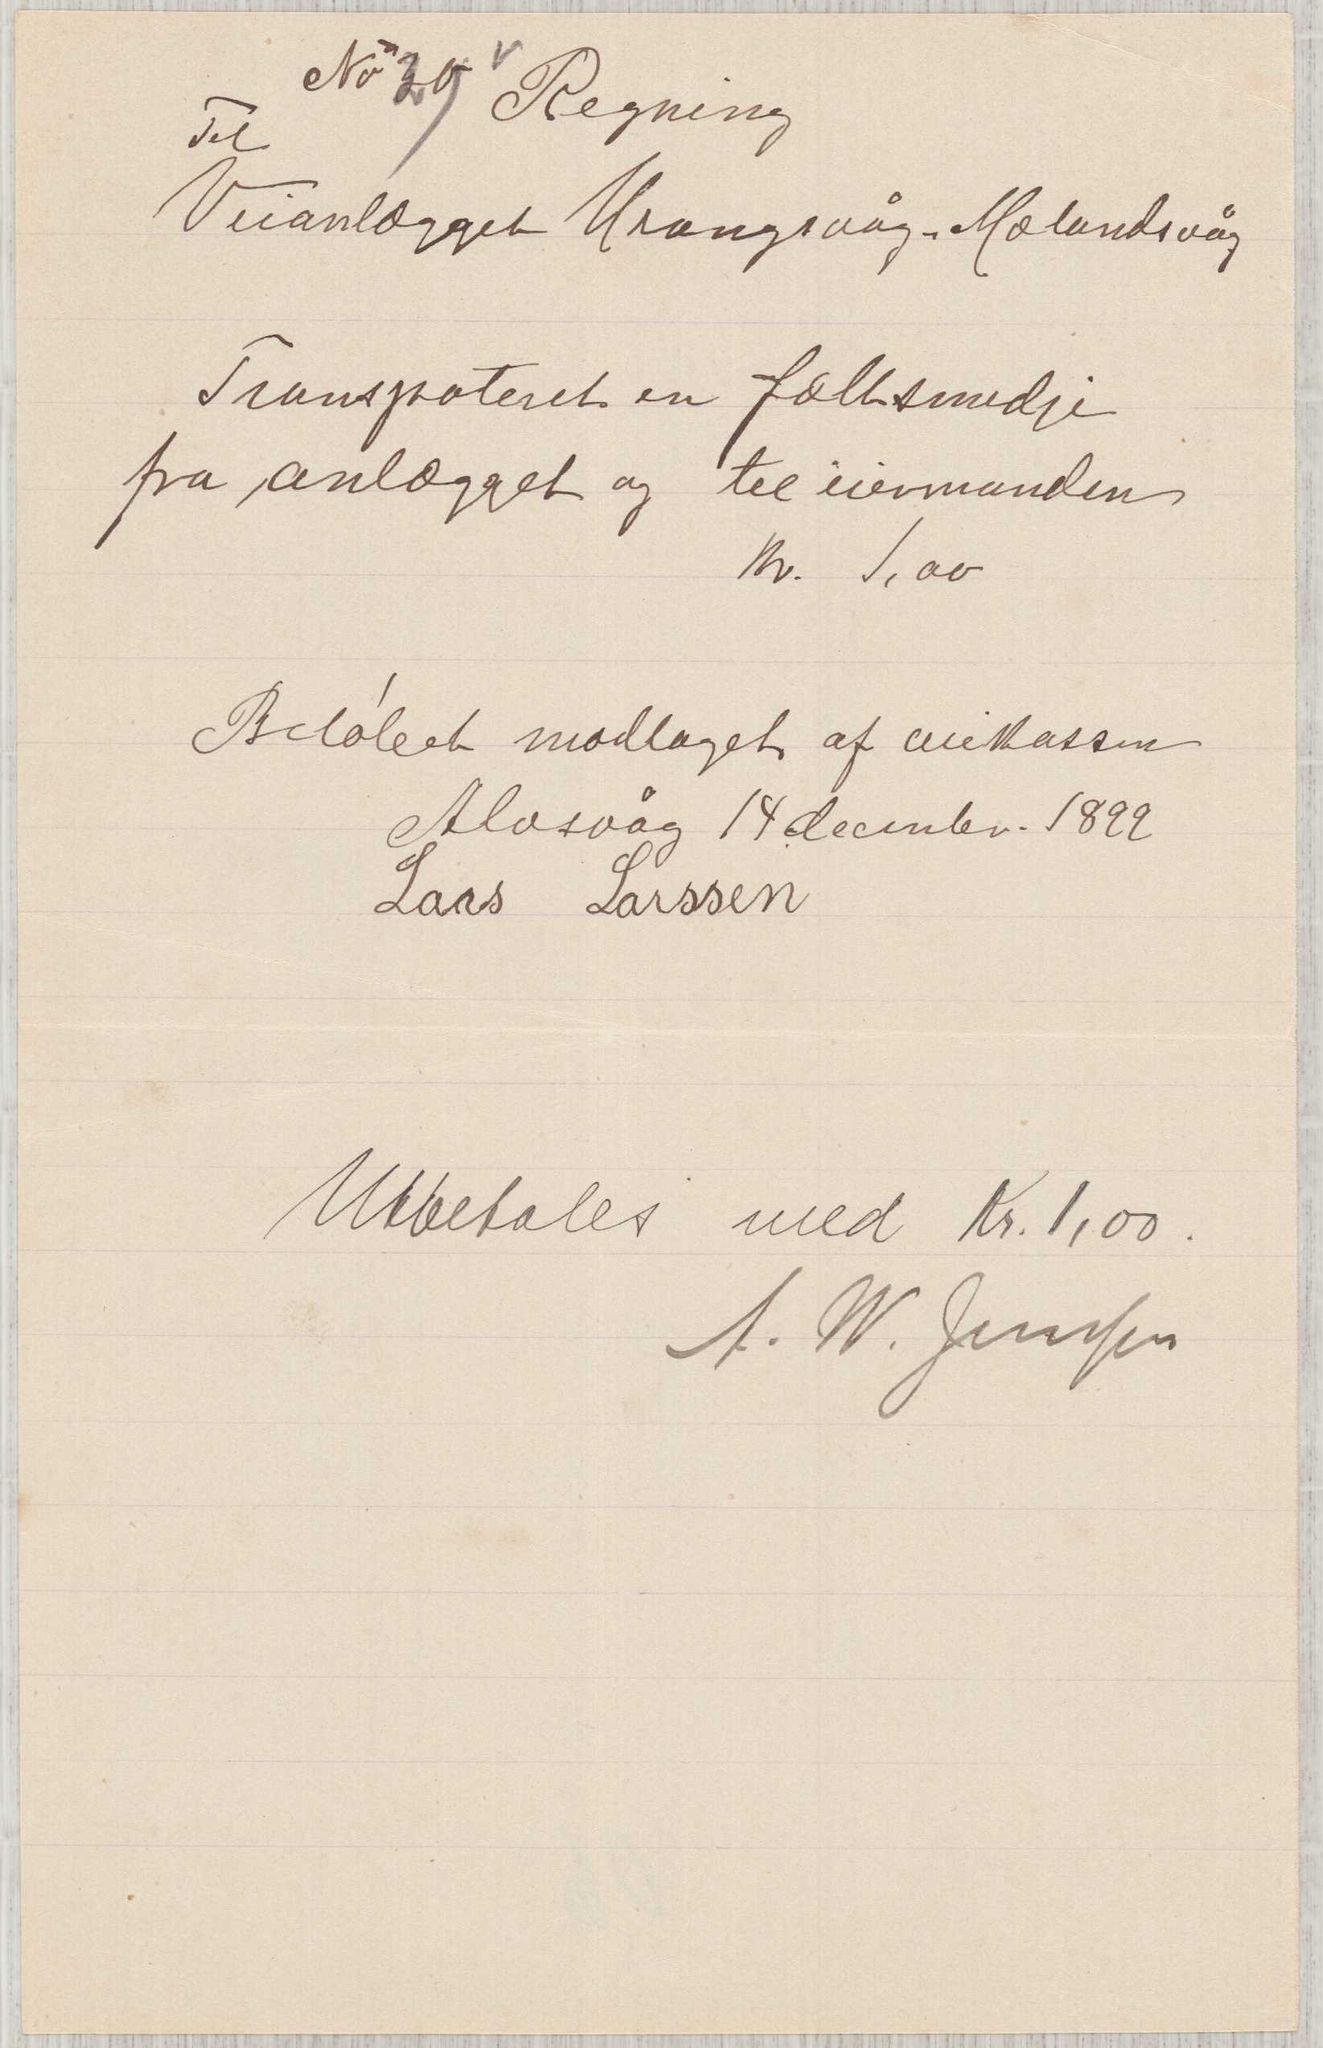 No Regning
Til
Veianlægget Urangsvåg - Mælandsvåg
Transpoteret en fæltsmedje
fra anlægget og til eiermanden
kr. 1,00
Beløbet modtaget af veikassen
Alvsvåg 14 december. 1899
Lars Larssen
Utbetales med Kr. 1,00.
A. W. Jenssen